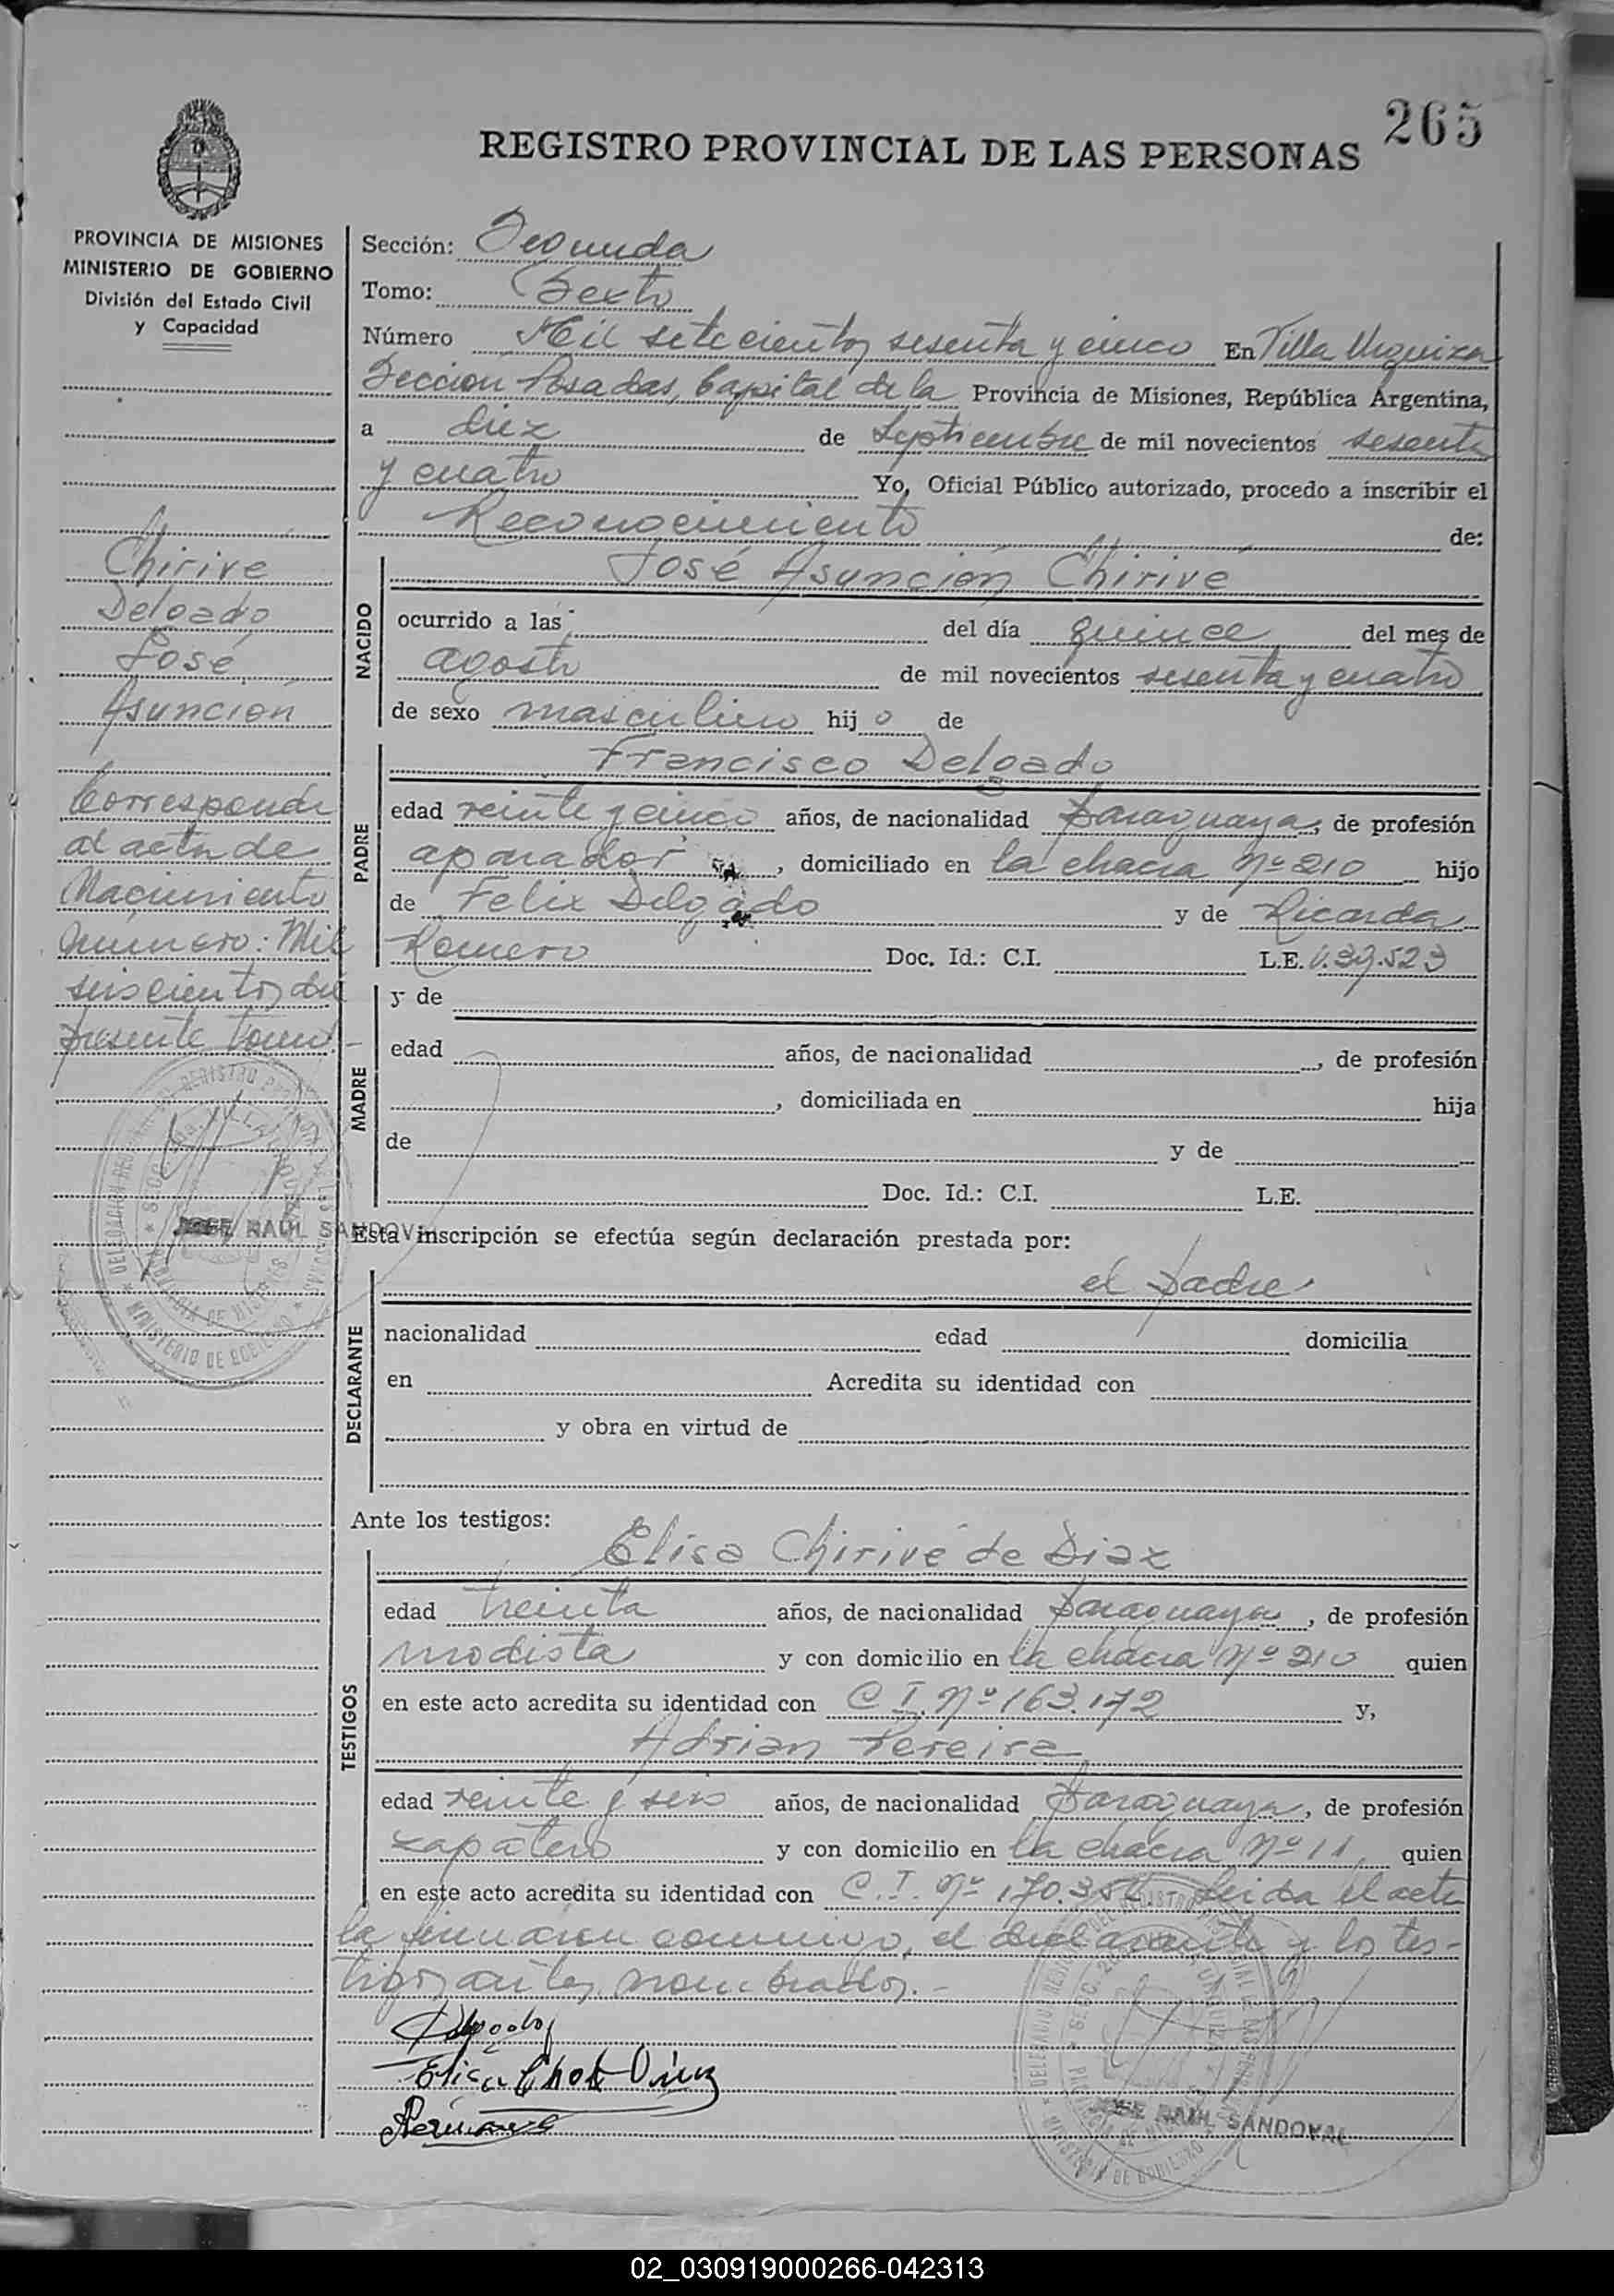 265
REGISTRO PROVINCIAL DE LAS PERSONAS
PROVINCIA DE MISIONES
MINISTERIO DE GOBIERNO
División del Estado Civil
y Capacidad
Chirive
Delgado
José
Asunción
Corresponde
al acta de
Nacimiento
número: Mil
seiscientos del
presente tomo.-
JOSE RAUL SANDOVAL
Sección: Segunda
Tomo: Sexto
Número Mil setecientos sesenta y cinco En Villa Urquiza
Sección Posadas, Capital de la Provincia de Misiones, República Argentina,
a diez de Septiembre de mil novecientos sesenta
y cuatro Yo, Oficial Público autorizado, procedo a inscribir el
Reconocimiento de:
NACIDO
José Asunción Chirivé
ocurrido a las del día quince del mes de
agosto de mil novecientos sesenta y cuatro
de sexo masculino hijo de
PADRE
Francisco Delgado
edad veinte y cinco años, de nacionalidad paraguaya, de profesión
aparador, domiciliado en la chacra Nº 210 hijo
de Felix Delgado y de Ricarda
Romero Doc. Id.: C.I. L.E. 39.523
MADRE
y de
edad años, de nacionalidad , de profesión
, domiciliada en hija
de y de
Doc. Id.: C.I. L.E.
Esta inscripción se efectúa según declaración prestada por:
DECLARANTE
el padre
nacionalidad edad domicilia
en Acredita su identidad con
y obra en virtud de
Ante los testigos:
TESTIGOS
Elisa Chirivé de Diaz
edad treinta años, de nacionalidad paraguaya, de profesión
modista y con domicilio en la chacra Nº 210 quien
en este acto acredita su identidad con C.I. Nº 163.172 y,
Adrian Pereira
edad veinte y seis años, de nacionalidad paraguaya, de profesión
zapatero y con domicilio en la chacra Nº 11 quien
en este acto acredita su identidad con C.I. Nº Leida el acta
la firmaron conmigo, el declarante y los tes-
tigos antes nombrados.-
JOSE RAUL SANDOVAL
02_030919000266-042313